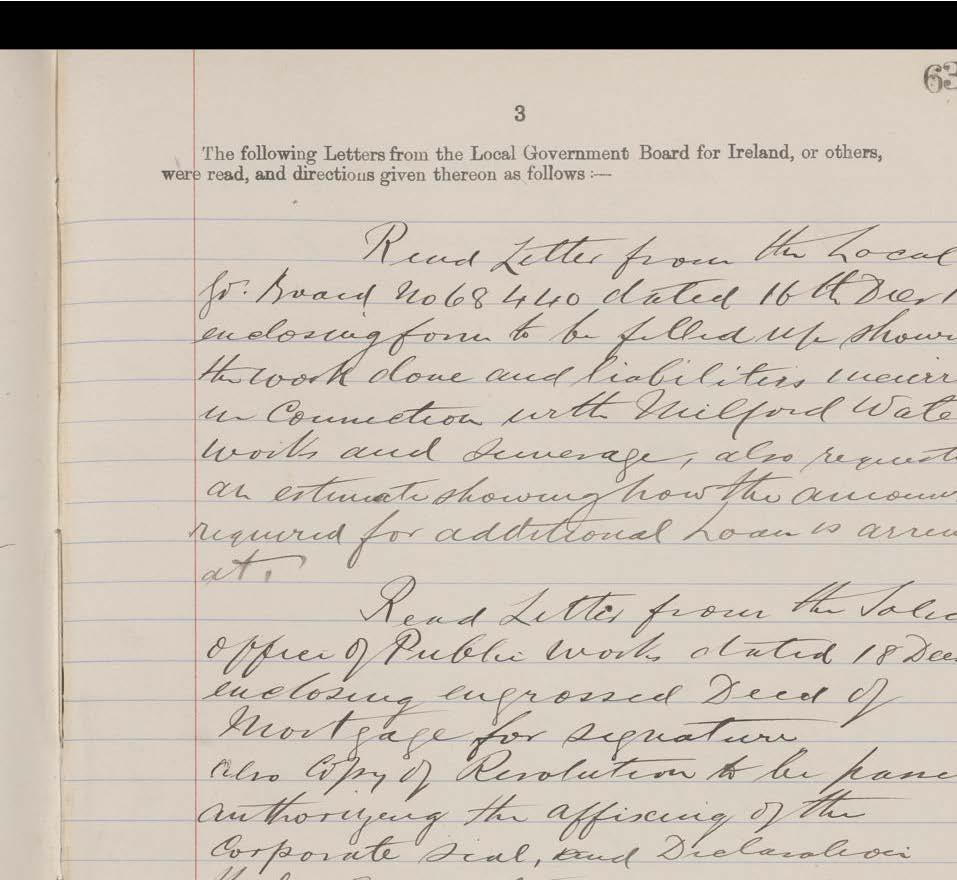 63
3
The following Letters from the Local Government Board for Ireland, or others,
were read, and directions given thereon as follows :—
Read Letter from the Local
Gt. Board No 68440 dated 16th Decr 1
enclosing form to be filled up show
the work done and liabilities incurr
in Connection with Milford Wate
works and sewerage, also request
an estimate showing how the amoun
required for additional Loan is arriv
at.
Read Letter from the Solic
office of Public Works dated 18 Dec
enclosing engrossed Deed of
Mortgage for signature
also Copy of Resolution to be passe
authorizeng the affixing of the
Corporate seal, and Declaration